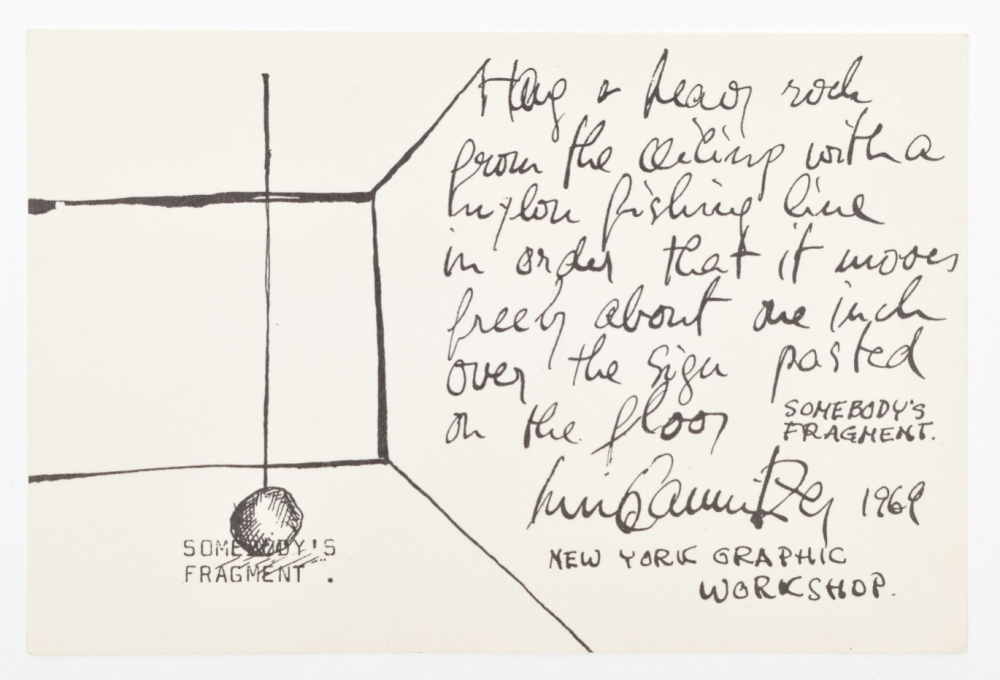 Hang a heavy rock
from the ceiling with a
nylon fishing line
in order that it moves
freely about one inch
over the sign pasted
on the floor SOMEBODY'S
FRAGMENT.
Luis Camnitzer 1969
NEW YORK GRAPHIC
WORKSHOP.
SOMEBODY'S
FRAGMENT .